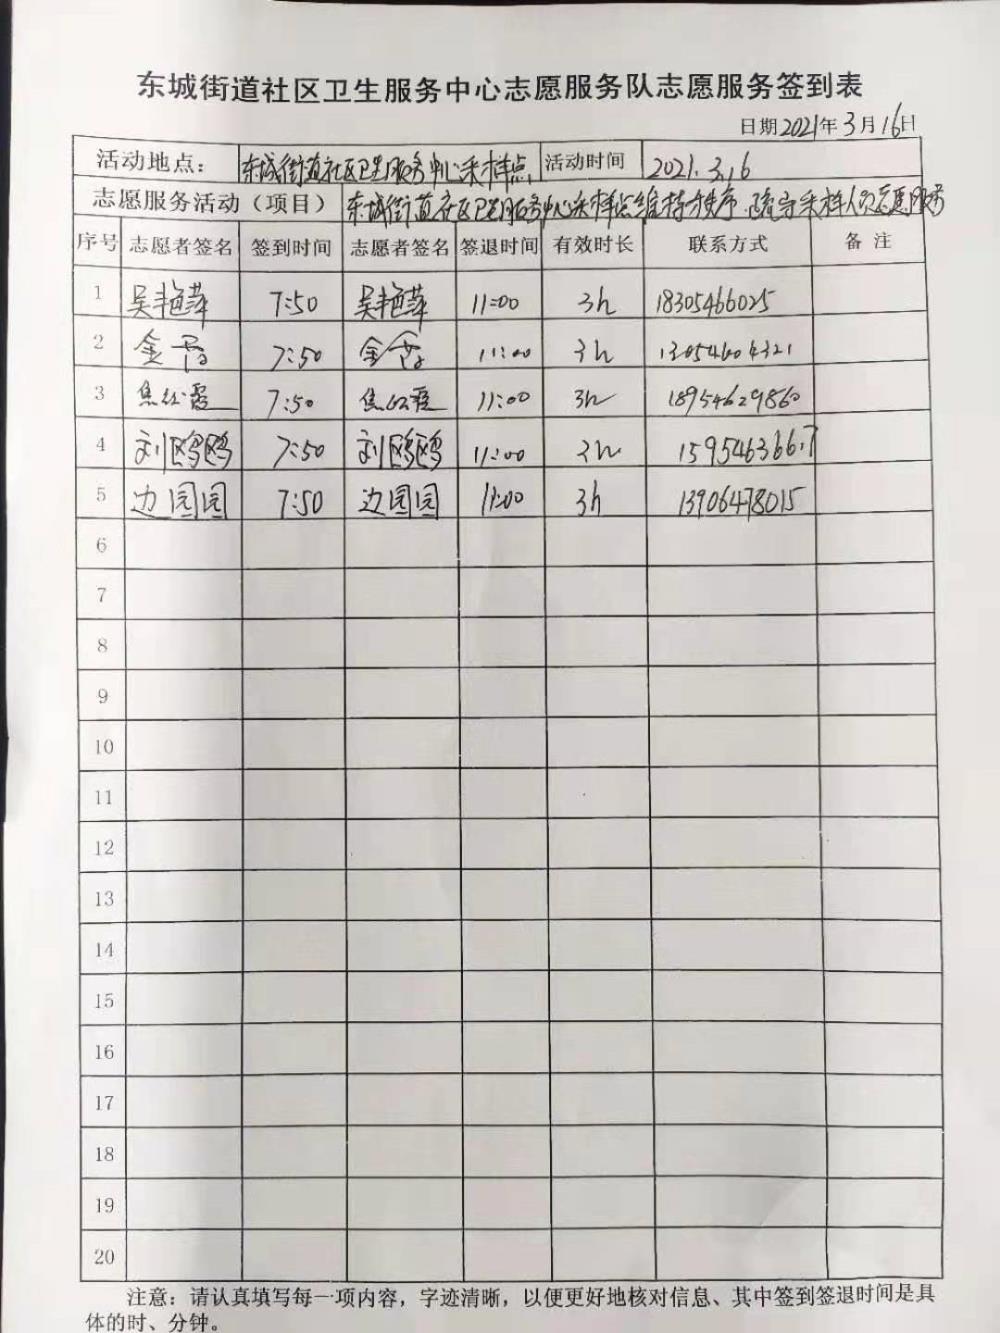 东城街道社区卫生服务中心志愿服务队志愿服务签到表
日期2021年3月16日
活动地点： 东城街道社区卫生服务中心采样点 活动时间 2021.3.16
志愿服务活动（项目） 东城街道社区卫生服务中心采样点维持秩序.疏导采样人员志愿服务
序号 志愿者签名 签到时间 志愿者签名 签退时间 有效时长 联系方式 备注
1 吴艳萍 7:50 吴艳萍 11:00 3h 18305466025
2 金香 7:50 金香 11:00 3h 13054604321
3 焦红霞 7:50 焦红霞 11:00 3h 18954629860
4 刘鸥鸥 7:50 刘鸥鸥 11:00 3h
5 边园园 7:50 边园园 11:00 3h 13906478015
6
7
8
9
10
11
12
13
14
15
16
17
18
19
20
注意：请认真填写每一项内容，字迹清晰，以便更好地核对信息、其中签到签退时间是具
体的时、分钟。